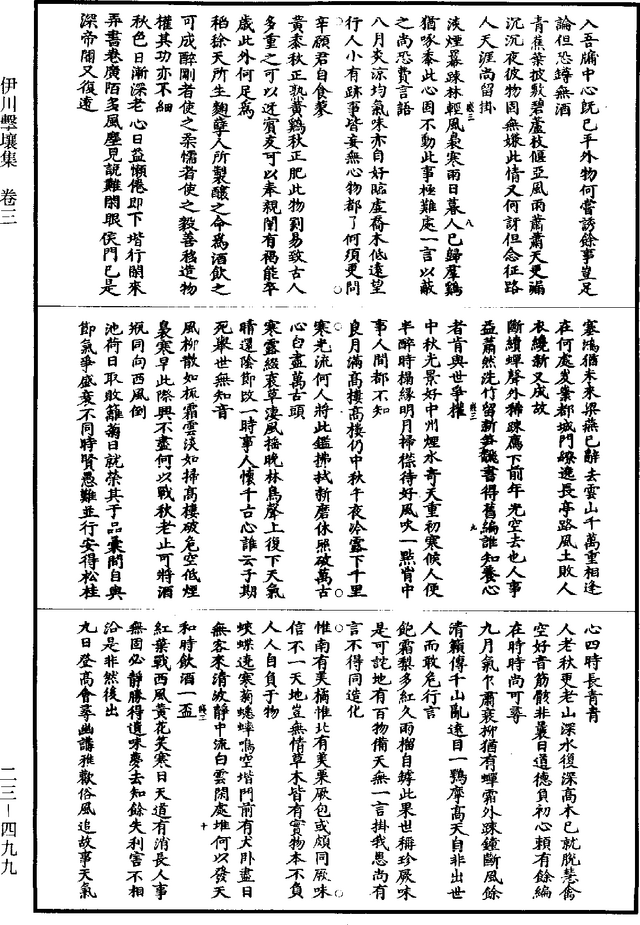 入吾牖中心旣已乎外物何嘗誘餘事豈足
論但恐罇無酒
青蕉葉披敷碧蘆枝偃亞風雨蕭蕭天更漏
沉沉夜彼物固無嫌此情又何訝但念征路
人天涯尚留掛
淡煙羃踈林輕風裊寒雨日暮人已歸羣鷄
猶啄黍此心固不動此事極難處一言以蔽
之尚恐費言語
八月炎涼均氣味亦自好臨虛喬木低遠望
行人小有跡事皆妄無心物都了何須更問
辛顏君自食蓼
黃黍秋正熟黃鷄秋正肥此物到易致古人
多重之可以迓賓友可以奉親闈有褐能卒
歲此外何足爲
稻徐天所生麴糵人所製釀之命爲酒飲之
可成醉剛者使之柔懦者使之毅善移造物
權其功亦不細
秋色日漸深老心日益懶倦即下堦行閑來
弄書卷廣陌多風塵見說難開眼侯門已是
深帝閽又復遠
伊川擊壤集 卷三
塞鴻猶未來梁燕已辭去雲山千萬重相逢
在何處炎業都城門繚遶長亭路風土敗人
衣纔新又成故
斷續蟬聲外稀踈鴈下前年光空去也人事
益蕭然洗竹留新笋翻書得舊編誰知養心
者肯與世爭權
中秋光景好中州煙水奇天重初寒候人便
半醉時楊緣明月掃襟待好風吹一點胷中
事人間都不知
良月滿高樓高樓仍中秋千夜冷露下千里
寒光流何人將此鑑拂拭新磨休照破萬古
心白盡萬古頭
寒露綴衰草淒風搖晚林鳥聲上復下天氣
晴還陰節改一時事人懷千古心誰云子期
死舉世無知音
風柳散如梳霜雲淡如掃高樓破危空低煙
裊寒早此際興不盡何以戰秋老止可將酒
瓶同向西風倒
池荷日取敗籬菊日就榮其于品彙間自與
節氣爭盛衰不同時賢愚難並行安得松桂
心四時長青青
人老秋更老山深水復深高木已就脫慧禽
空好音筋骸非曩日道德負初心頼有餘編
在時時尚可尋
九月氣乍肅衰柳猶有蟬霜外踈鐘斷風餘
清籟傳千山亂遠目一鶚摩高天自非出世
人而敢危行言
飽霜梨多紅久雨榴自罅此果世稱珍厥味
是可詫地有百物備天無一言掛我思尚有
言不得同造化
惟南有美橘惟北有美栗厥包或頗同厥味
信不一天地豈無情草木皆有實物本不負
人人自負于物
蛺蝶遶寒菊蟋蟀鳴空堦門前有犬臥盡日
無客來清波靜中流白雲閑處堆何以發天
和時飲酒一盃
紅葉戰西風黃花笑寒日天道有消長人事
無固必靜勝得遺味夢去知餘失利害不相
沿是非然後出
九日登高會尋幽講雅歡俗風追故事天氣
二三－四九九